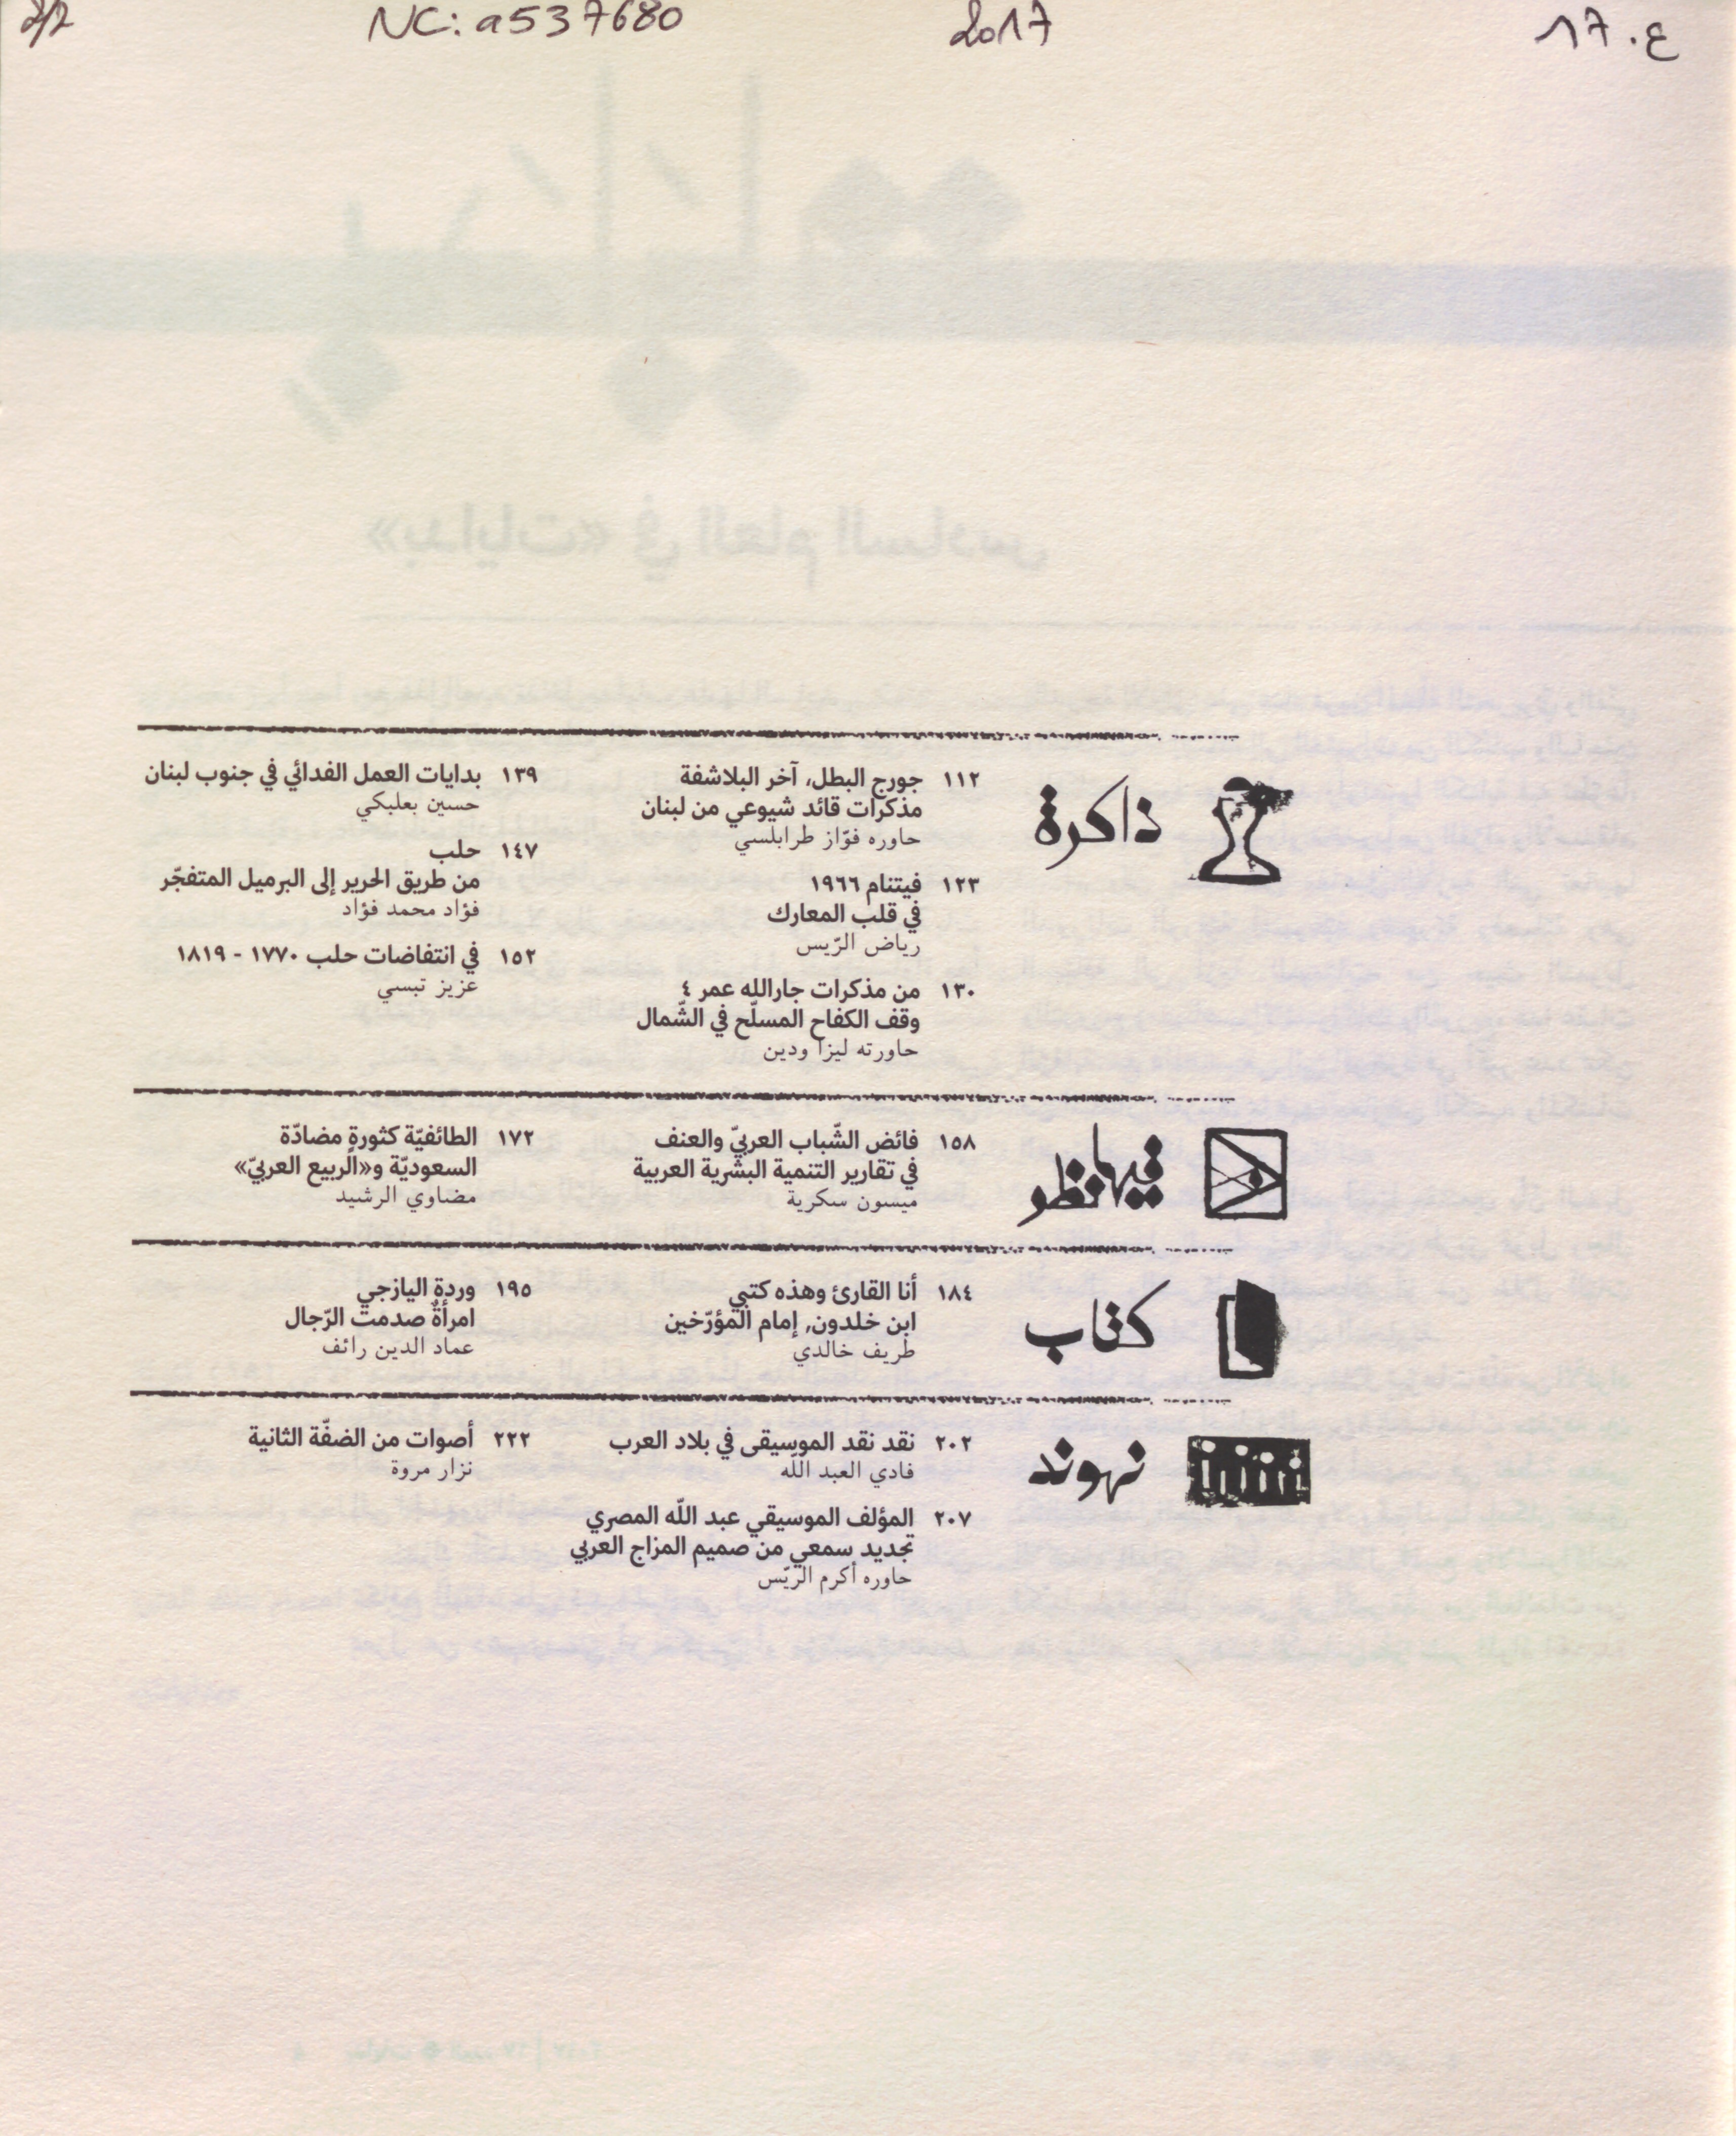 2/2
NC: a537680
2017
ع. 17
ذاكرة
١١٢ جورج البطل، آخر البلاشفة
مذكرات قائد شيوعي من لبنان
حاوره فوّاز طرابلسي
١٢٣ فيتنام ١٩٦٦
في قلب المعارك
رياض الرّيس
١٣٠ من مذكرات جارالله عمر ٤
وقف الكفاح المسلّح في الشّمال
حاورته ليزا ودين
١٣٩ بدايات العمل الفدائي في جنوب لبنان
حسين بعلبكي
١٤٧ حلب
من طريق الحرير إلى البرميل المتفجّر
فؤاد محمد فؤاد
١٥٢ في انتفاضات حلب ١٧٧٠ - ١٨١٩
عزيز تبسي
فيها نظر
١٥٨ فائض الشّباب العربيّ والعنف
في تقارير التنمية البشرية العربية
ميسون سكرية
١٧٢ الطائفيّة كثورةٍ مضادّة
السعوديّة و«الربيع العربيّ»
مضاوي الرشيد
كتاب
١٨٤ أنا القارئ وهذه كتبي
ابن خلدون, إمام المؤرّخين
طريف خالدي
١٩٥ وردة اليازجي
امرأةٌ صدمت الرّجال
عماد الدين رائف
نهوند
٢٠٢ نقد نقد الموسيقى في بلاد العرب
فادي العبد اللّه
٢٠٧ المؤلف الموسيقي عبد اللّه المصري
تجديد سمعي من صميم المزاج العربي
حاوره أكرم الريّس
٢٢٢ أصوات من الضفّة الثانية
نزار مروة